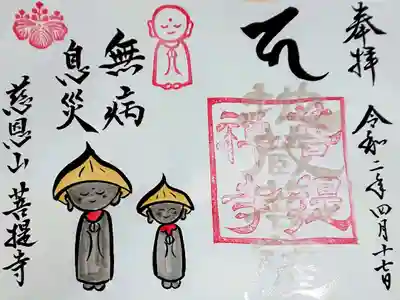 奉拝
令和二年四月十七日
地蔵菩薩
無病
息災
慈恩山 菩提寺